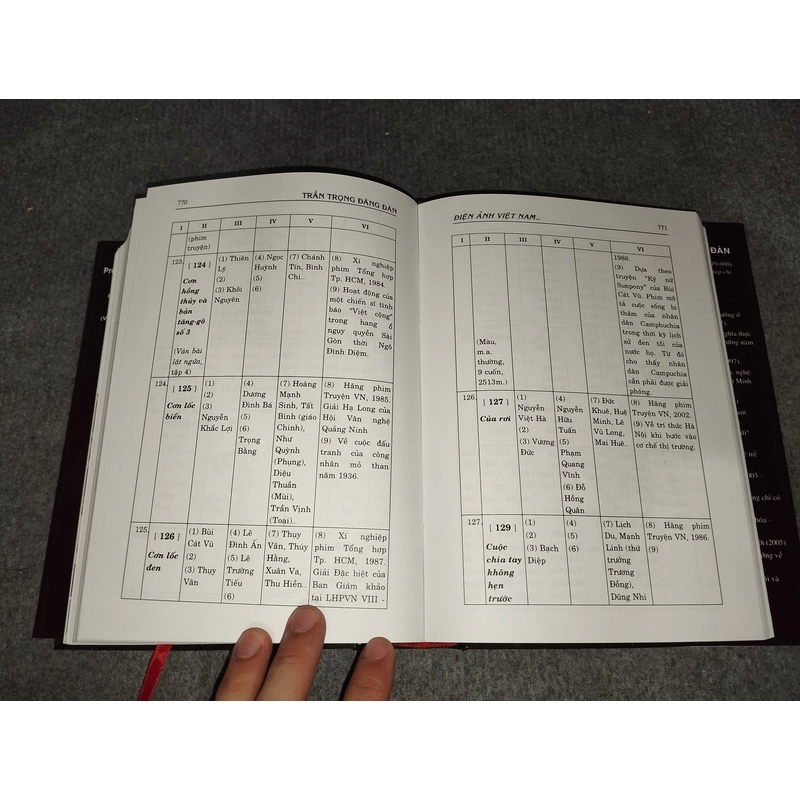 770
TRẦN TRỌNG ĐĂNG ĐÀN
I II III IV V VI
(phim
truyện)
123.
[ 124 ]
Cơn
hồng
thủy và
bản
tăng-gô
số 3
(Ván bài
lật ngửa,
tập 4)
(1) Thiên
Lý
(2)
(3) Khôi
Nguyên
(4) Ngọc
Huỳnh
(5)
(6)
(7) Chánh
Tín, Bình
Chi..
(8) Xí nghiệp
phim Tổng hợp
Tp. HCM, 1984.
(9) Hoạt động của
một chiến sĩ tình
báo "Việt cộng"
trong hang ổ
ngụy quyền Sài
Gòn thời Ngô
Đình Diệm.
124.
[ 125 ]
Cơn lốc
biển
(1)
(2)
(3)
Nguyễn
Khắc Lợi
(4)
Dương
Đình Bá
(5)
(6)
Trọng
Bằng
(7) Hoàng
Mạnh
Sinh, Tất
Bình (giáo
Chinh),
Như
Quỳnh
(Phụng),
Diệu
Thuần
(Mùi),
Trần Vịnh
(Toại)..
(8) Hãng phim
Truyện VN, 1985.
Giải Hạ Long của
Hội Văn nghệ
Quảng Ninh
(9) Về cuộc đấu
tranh của công
nhân mỏ than
năm 1936.
125.
[ 126 ]
Cơn lốc
đen
(1) Bùi
Cát Vũ
(2)
(3) Thuy
Vân
(4) Lê
Đình Ấn
(5) Lê
Trường
Tiếu
(6)
(7) Thuy
Vân, Thúy
Hằng,
Xuân Va,
Thu Hiền..
(8) Xí nghiệp
phim Tổng hợp
Tp. HCM, 1987.
Giải Đặc biệt của
Ban Giám khảo
tại LHPVN VIII -
ĐIỆN ẢNH VIỆT NAM..
771
I II III IV V VI
(Màu,
m.a.
thường,
9 cuốn,
2513m.)
1988.
(9) Dựa theo
truyện "Kỹ nữ
Sunpony" của Bùi
Cát Vũ. Phim mô
tả cuộc sống bi
thảm của nhân
dân Camphuchia
trong thời kỳ lịch
sử đen tối của
nước họ. Từ đó
cho thấy nhân
dân Campuchia
cần phải được giải
phóng.
126.
[ 127 ]
Của rơi
(1)
Nguyễn
Việt Hà
(2)
(3) Vương
Đức
(4)
Nguyễn
Hữu
Tuấn
(5)
Phạm
Quang
Vĩnh
(6) Đỗ
Hồng
Quân
(7) Đức
Khuê, Huệ
Minh, Lê
Vũ Long,
Mai Huê..
(8) Hãng phim
Truyện VN, 2002.
(9) Về trí thức Hà
Nội khi bước vào
cơ chế thị trường.
127.
[ 129 ]
Cuộc
chia tay
không
hẹn
trước
(1)
(2)
(3) Bạch
Diệp
(4)
(5)
(6)
(7) Lịch
Du, Mạnh
Linh (thứ
trưởng
Trương
Đồng),
Dũng Nhi
(8) Hãng phim
Truyện VN, 1986.
(9)
ĐÀN